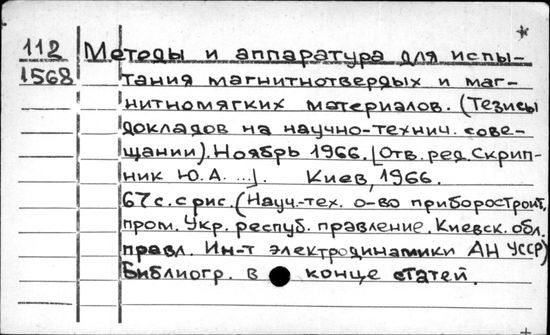 112 Методы и аппаратура для испы-
1568 тания магнитнотвердых и маг-
нитномягких материалов. (Тезисы
докладов на научно-технич. сове-
щании). Ноябрь 1966. [Отв. ред. Скрип-
ник Ю. А. ...]. Киев, 1966.
67 с. с рис. (Науч.-тех. о-во приборостроит.
пром. Укр. респуб. правление. Киевск. обл.
правл. Ин-т электродинамики АН УССР)
Библиогр. в конце статей.